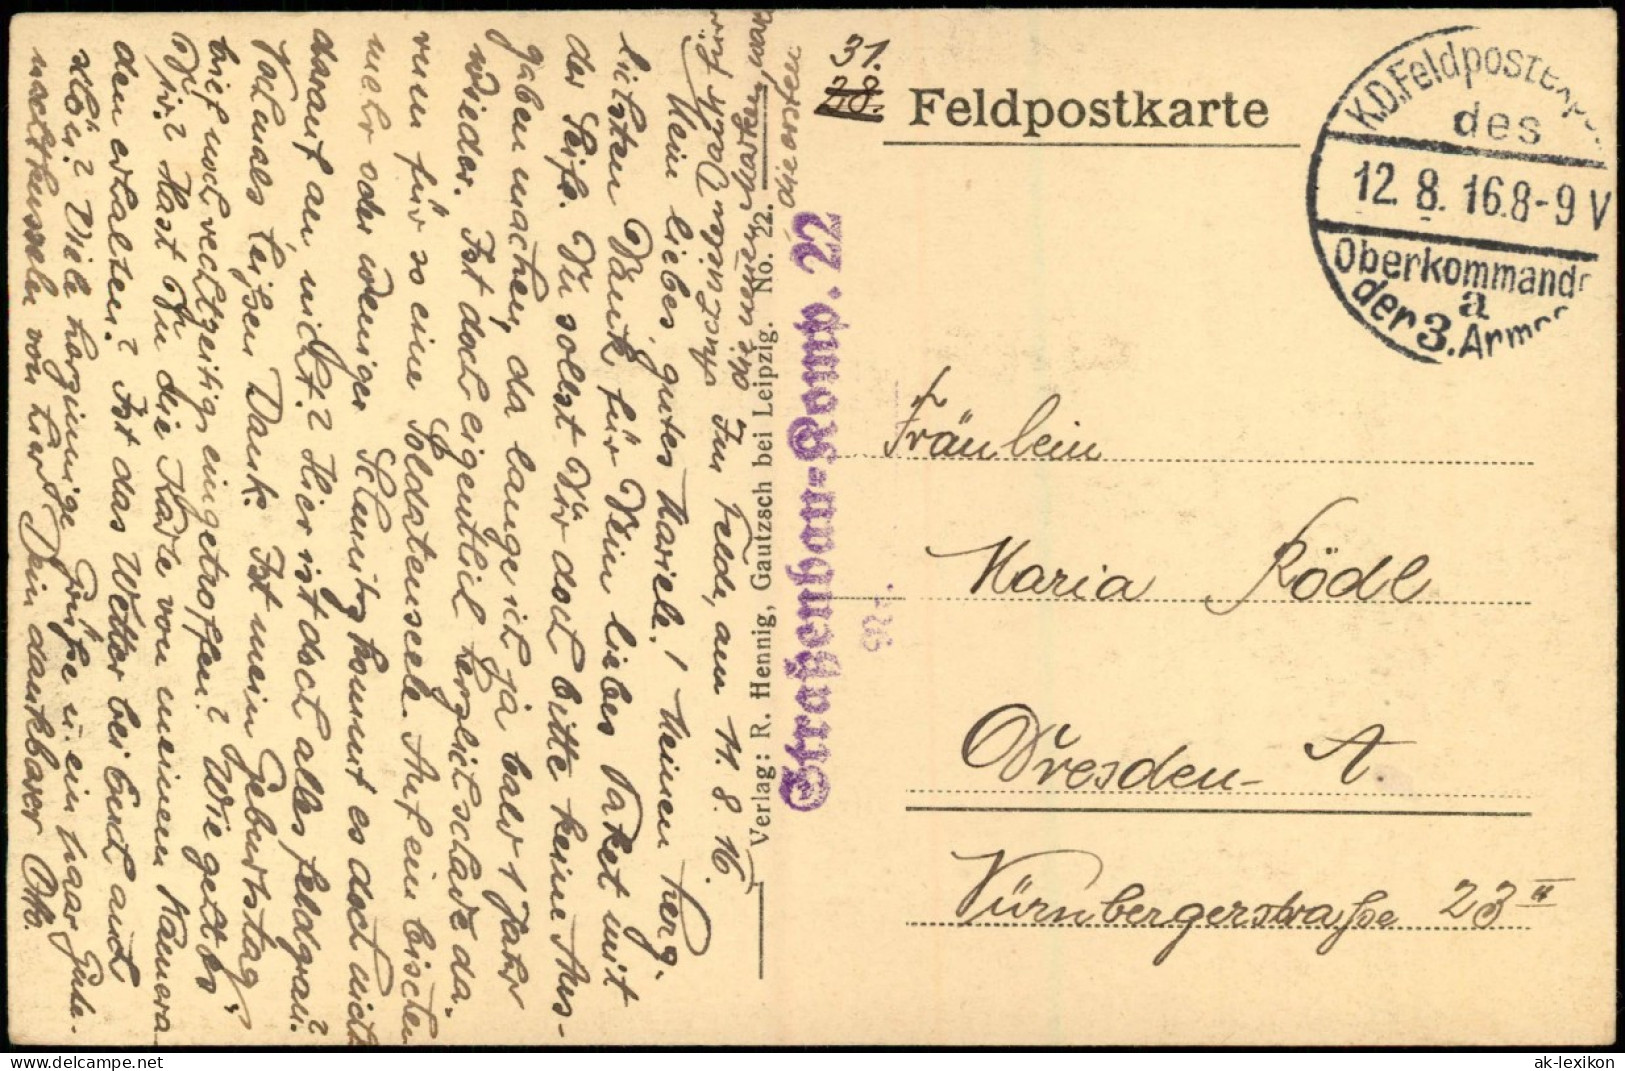 31.
28.
Feldpostkarte
K.D.Feldpostexp.
des
12. 8. 16.8-9 V
Oberkommando
a
der 3. Armee
Fräulein
Maria Rödl
Dresden - A.
Nürnbergerstraße 23 II
Straßenbau-Komp. 22
Nr.
Verlag: R. Hennig, Gautzsch bei Leipzig. No. 22.
Im Felde, am 11. 8. 16.
Mein liebes, gutes Mariele! Meinen herz-
lichsten Dank für Dein liebes Paket mit
der Seife. Du sollst Dir doch bitte keine Aus-
gaben machen, da lange ich ja bald 1 Jahr
wieder. Ist doch eigentlich herzlich schade da-
rum für so eine Soldatenseele. Auf ein bischen
mehr oder weniger Schmutz kommt es doch nicht
darauf an, nicht? Hier ist doch alles feldgrau.
Nochmals heißen Dank. Ist mein Geburtstag
brief noch rechtzeitig eingetroffen? Wie geht es
Dir? Hast Du die Karte von meinem Kamera-
den erhalten? Ist das Wetter bei Euch auch
schön? Viele herzinnige Grüße u. ein paar Gute-
nachtbusseln von hier Dein dankbarer Otto.
die ersten
ak-lexikon.de
ak-lexikon